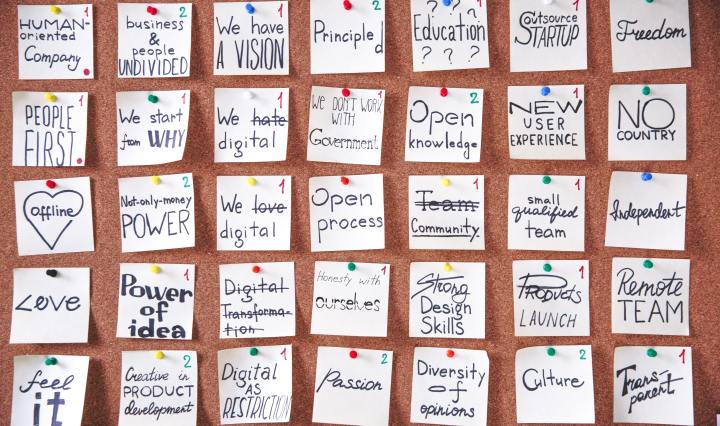 HUMAN-
oriented
Company
2
business
&
people
UNDIVIDED
1
We have
A VISION
2
Principled
? ? ?
Education
? ? ?
1
Outsource
STARTUP
Freedom
1
PEOPLE
FIRST
2
We start
from WHY
1
We hate
digital
1
WE DON'T WORK
WITH
Government
2
Open
knowledge
1
NEW
USER
EXPERIENCE
NO
COUNTRY
offline
2
Not-only-money
POWER
1
We love
digital
Open
process
1
Team
Community
1
small
qualified
team
Independent
Love
1
Power
of
idea
Digital
Transforma-
tion
1
Honesty with
ourselves
Strong
Design
Skills
1
Products
LAUNCH
Remote
TEAM
feel
it
2
Creative in
PRODUCT
development
1
Digital
AS
RESTRICTION
2
Passion
Diversity
of
opinions
2
Culture
1
Trans-
parent